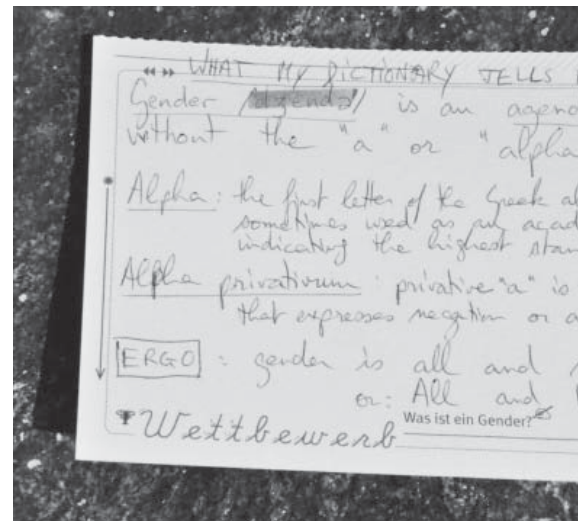 WHAT MY DICTIONARY TELLS
Gender /dʒendə/ is an agend
without the "a" or "alpha
Alpha: the first letter of the Greek al
sometimes used as an acad
indicating the highest stan
Alpha privativum: privative "a" is
that expresses negation or a
ERGO: gender is all and
or: All and
Was ist ein Gender?
Wettbewerb